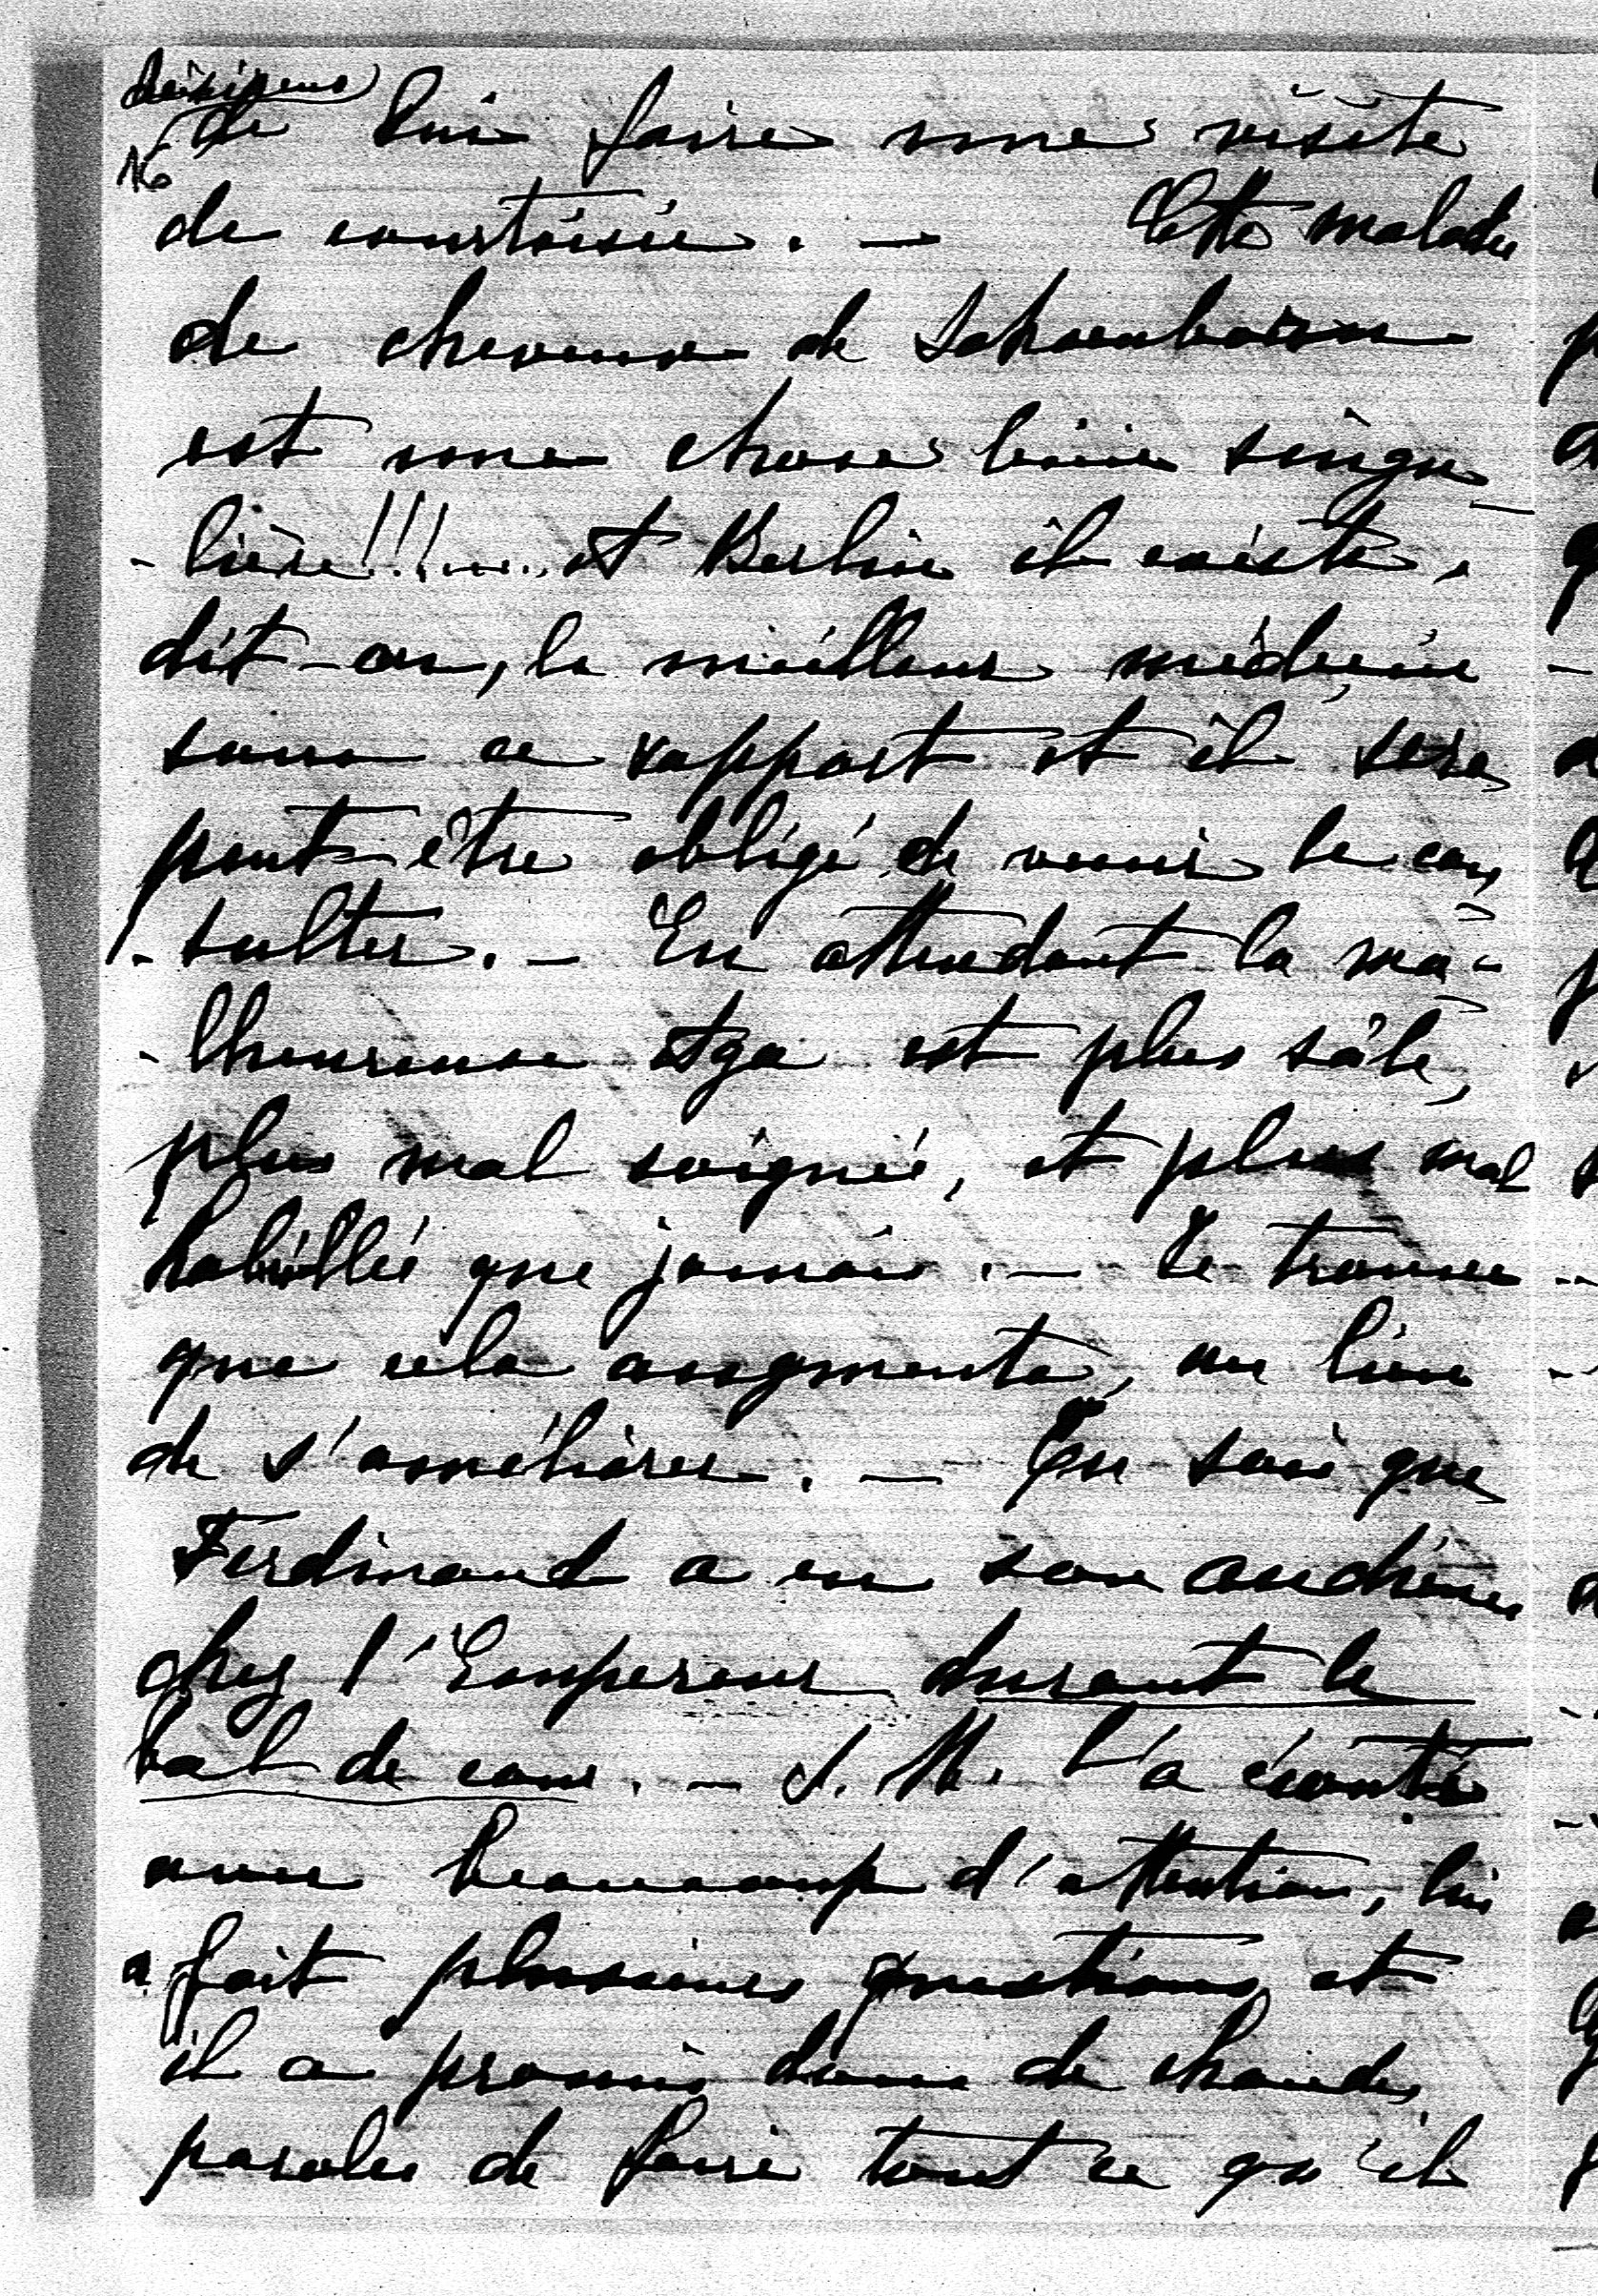 16
de lui faire une visite
de courtoisie. — Cette maladie
de cheveux de Schoenborn
est une chose bien singu
- lière!!!..... A Berlin il existe,
dit-on, le meilleur médecin
sous ce rapport et il sera
peut-être obligé de venir le con
- sulter. — En attendant la ma-
- lheureuse Aga est plus sâle,
plus mal soignée, et plus mal
habillée que jamais. — Je trouve
que cela augmente, au lieu
de s'améliorer. — Tu sais que
Ferdinand a eu son audience
chez l'Empereur durant le
bal de cour. — S. M. l'a écouté
avec beaucoup d'attention, lui
a fait plusieurs questions et
il a promis dans de chaudes
paroles de faire tout ce qu'il